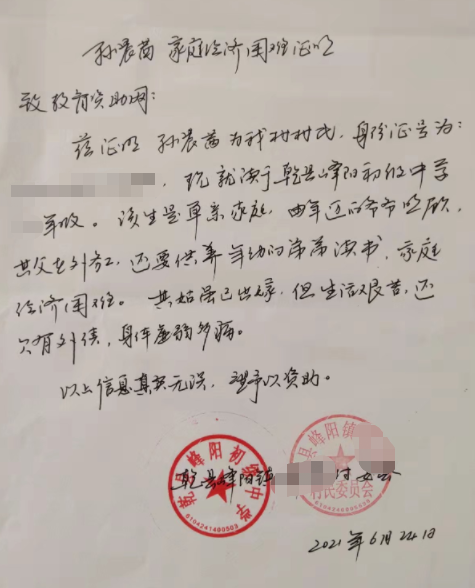 孙晨茜 家庭经济困难证明
致教育资助网:
兹证明 孙晨茜为我村村民,身份证号为:
,现就读于乾县峰阳初级中学
年级。该生是单亲家庭,由年迈的爷爷照顾,
其父在外务工,还要供养年幼的弟弟读书,家庭
经济困难。其姑虽已出嫁,但生活艰苦,还
欠有外债,身体虚弱多病。
以上信息真实无误,望予以资助。
乾县峰阳初级中学
6104241400503
县峰阳镇
村民委员会
乾县峰阳镇 村委会
2021年6月24日